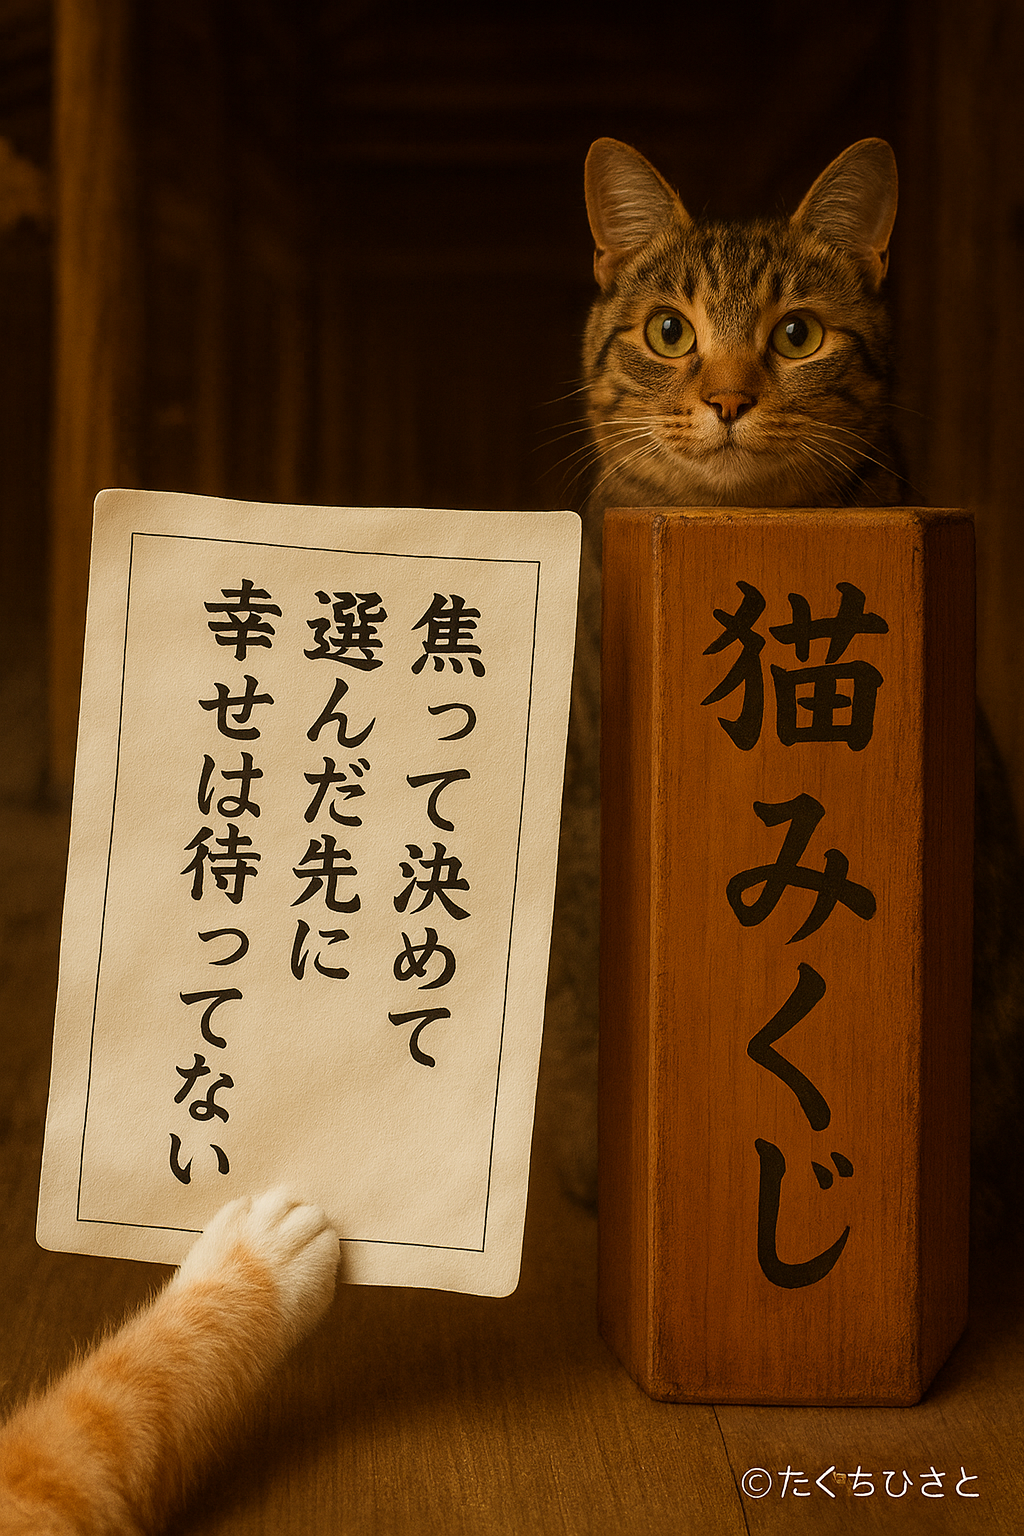 焦って決めて
選んだ先に
幸せは待ってない
猫みくじ
©たくちひさと